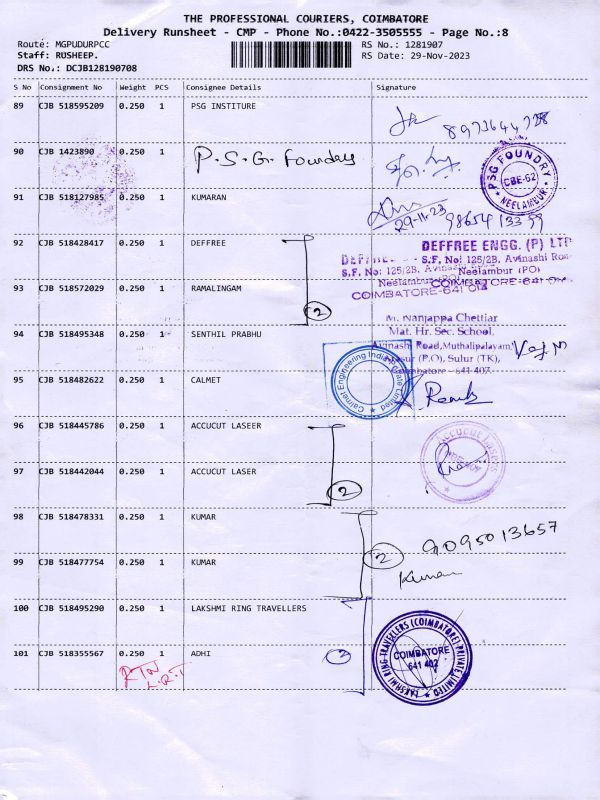 THE PROFESSIONAL COURIERS, COIMBATORE
Delivery Runsheet - CMP - Phone No.:0422-3505555 - Page No.:8
Route: MGPUDURPCC RS No.: 1281907
Staff: RUSHEEP. RS Date: 29-Nov-2023
DRS No.: DCJB128190708
S No Consignment No Weight PCS Consignee Details Signature
89 CJB 518595209 0.250 1 PSG INSTITURE
90 CJB 1423890 0.250 1 P.S.G. Foundry
PSG FOUNDRY CBE-62 NEELAMBUR
91 CJB 518127985 0.250 1 KUMARAN
29-11-23
92 CJB 518428417 0.250 1 DEFFREE
DEFFREE ENGG. (P) LTD
S.F. No: 125/2B, Avinashi Road
Neelambur (PO)
COIMBATORE-641
DEFFREE
S.F. No: 125/2B, Avinashi
Neelambur
COIMBATORE-641
93 CJB 518572029 0.250 1 RAMALINGAM
2
94 CJB 518495348 0.250 1 SENTHIL PRABHU
Nanjappa Chettiar
Mat. Hr. Sec. School,
Avinash Road, Muthalipalayam
(P.O), Sulur (TK),
Coimbatore - 641 407.
95 CJB 518482622 0.250 1 CALMET
Calmet Engineering India Private Limited
96 CJB 518445786 0.250 1 ACCUCUT LASEER
97 CJB 518442044 0.250 1 ACCUCUT LASER
2
98 CJB 518478331 0.250 1 KUMAR
2 9095013657
99 CJB 518477754 0.250 1 KUMAR
Kumar
100 CJB 518495290 0.250 1 LAKSHMI RING TRAVELLERS
LAKSHMI RING TRAVELLERS (COIMBATORE) PRIVATE LIMITED
COIMBATORE
641 402
101 CJB 518355567 0.250 1 ADHI
RTN
L.R.T